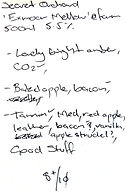 Secret Orchard
'Exmoor Mellow' @ farm
500ml 5.5%
- Lovely bright amber,
CO2 -
- Baked apple, bacon,
- Tannin, Med, red apple,
leather, bacon?, vanilla,
apple strudel?
Good Stuff
8+/10